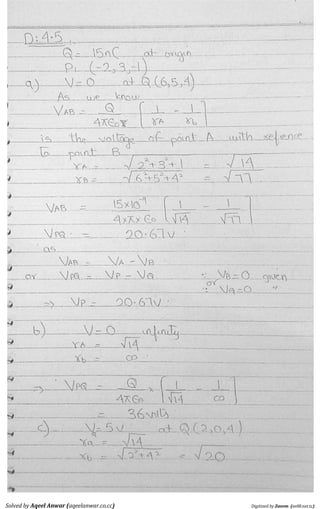 D:4.5
Q = 15nC at origin
P₁ (-2,3,-1)
a) V=0 at Q(6,5,4)
As we know
VAB = Q / 4π∈₀r [ 1/rA - 1/rb ]
is the voltage of point A with refrence
to point B
rA = √2²+3²+1 = √14
rB = √6²+5²+4² = √77
VAB = 15x10⁻⁹ / 4xπx∈₀ [ 1/√14 - 1/√77 ]
VPQ = 20.67V
as
VAB = VA - VB
or VPQ = VP - VQ ∵ VB=0 given
or VQ=0 "
=> VP = 20.67V
b) V=0 infinity
rA = √14
rb = ∞
=> VPQ = Q / 4π∈₀ x [ 1/√14 - 1/∞ ]
= 36volts
c) V=5v at Q(2,0,4)
ra = √14
rb = √2²+4² = √20
Solved by Aqeel Anwar (aqeelanwar.co.cc)